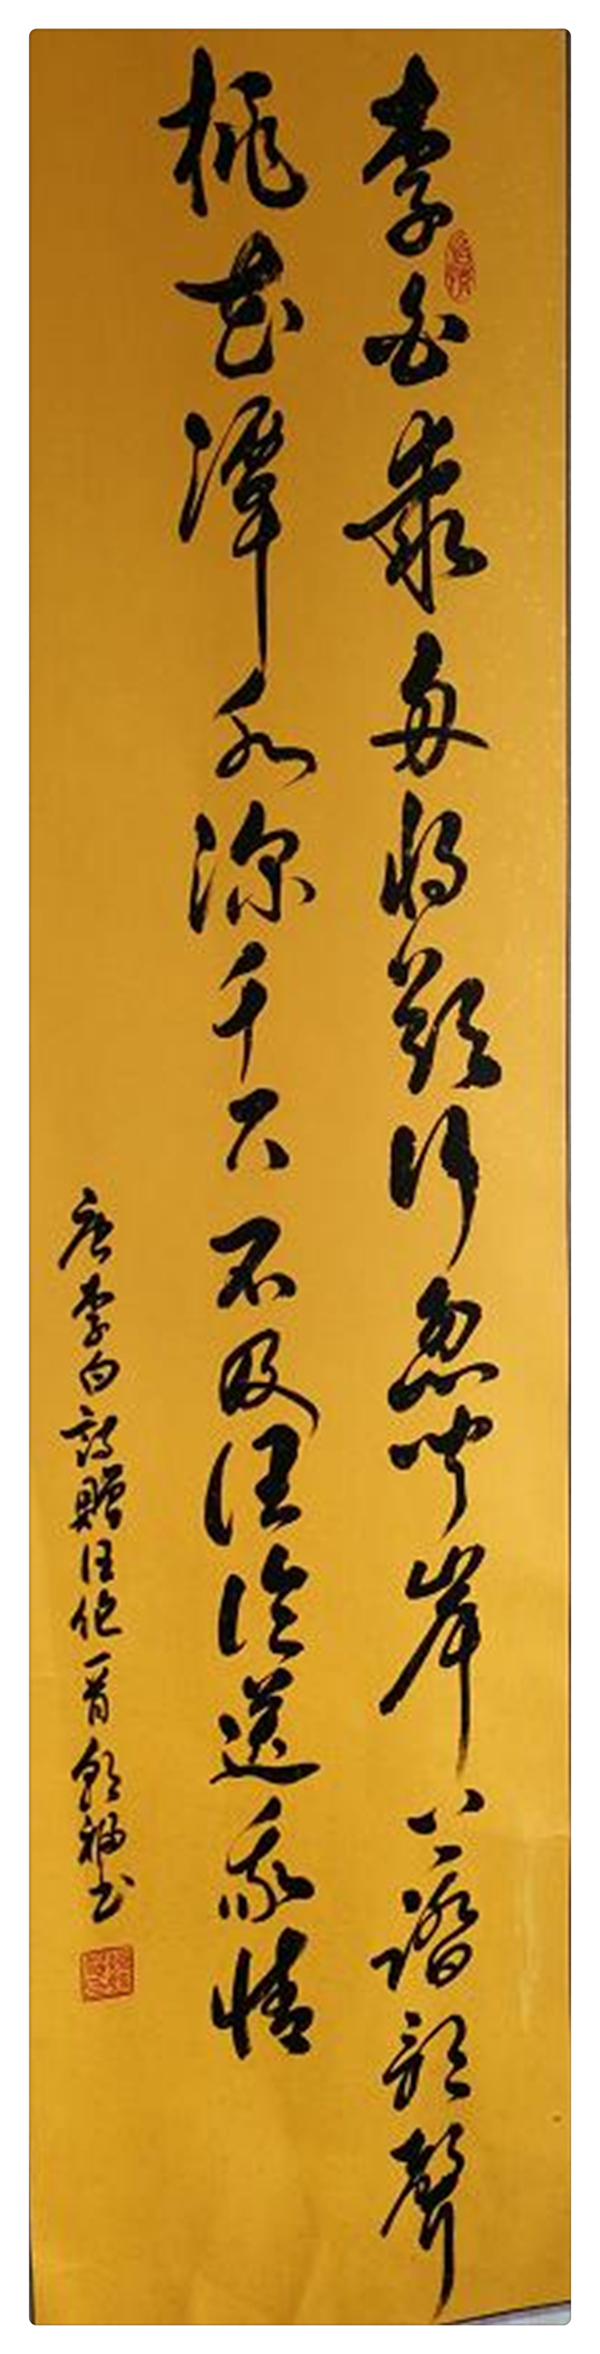 李白乘舟将欲行忽闻岸上踏歌聲
桃花潭水深千尺不及汪伦送我情
唐李白诗赠汪伦一首 福书